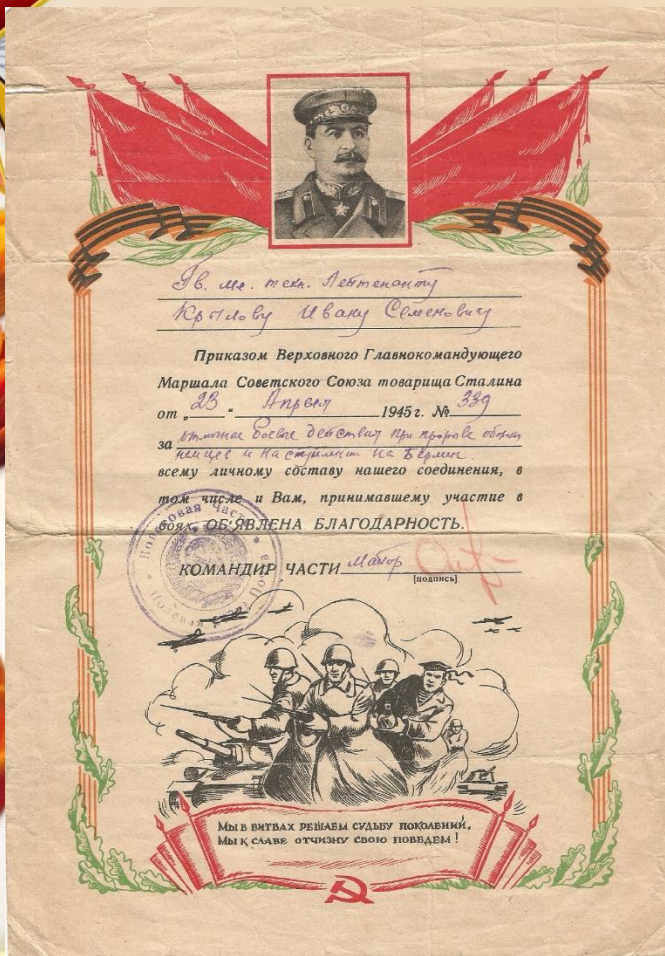 Гв. мл. техн. Лейтенанту
Крылову Ивану Семеновичу
Приказом Верховного Главнокомандующего
Маршала Советского Союза товарища Сталина
от „23“ Апреля 1945 г. № 339
за отличные боевые действия при прорыве обороны
немцев и наступлении на Берлин
всему личному составу нашего соединения, в
том числе и Вам, принимавшему участие в
боях, ОБ‘ЯВЛЕНА БЛАГОДАРНОСТЬ.
Войсковая Часть
Полевая
КОМАНДИР ЧАСТИ Майор
[подпись]
МЫ В БИТВАХ РЕШАЕМ СУДЬБУ ПОКОЛЕНИЙ,
МЫ К СЛАВЕ ОТЧИЗНУ СВОЮ ПОВЕДЕМ !